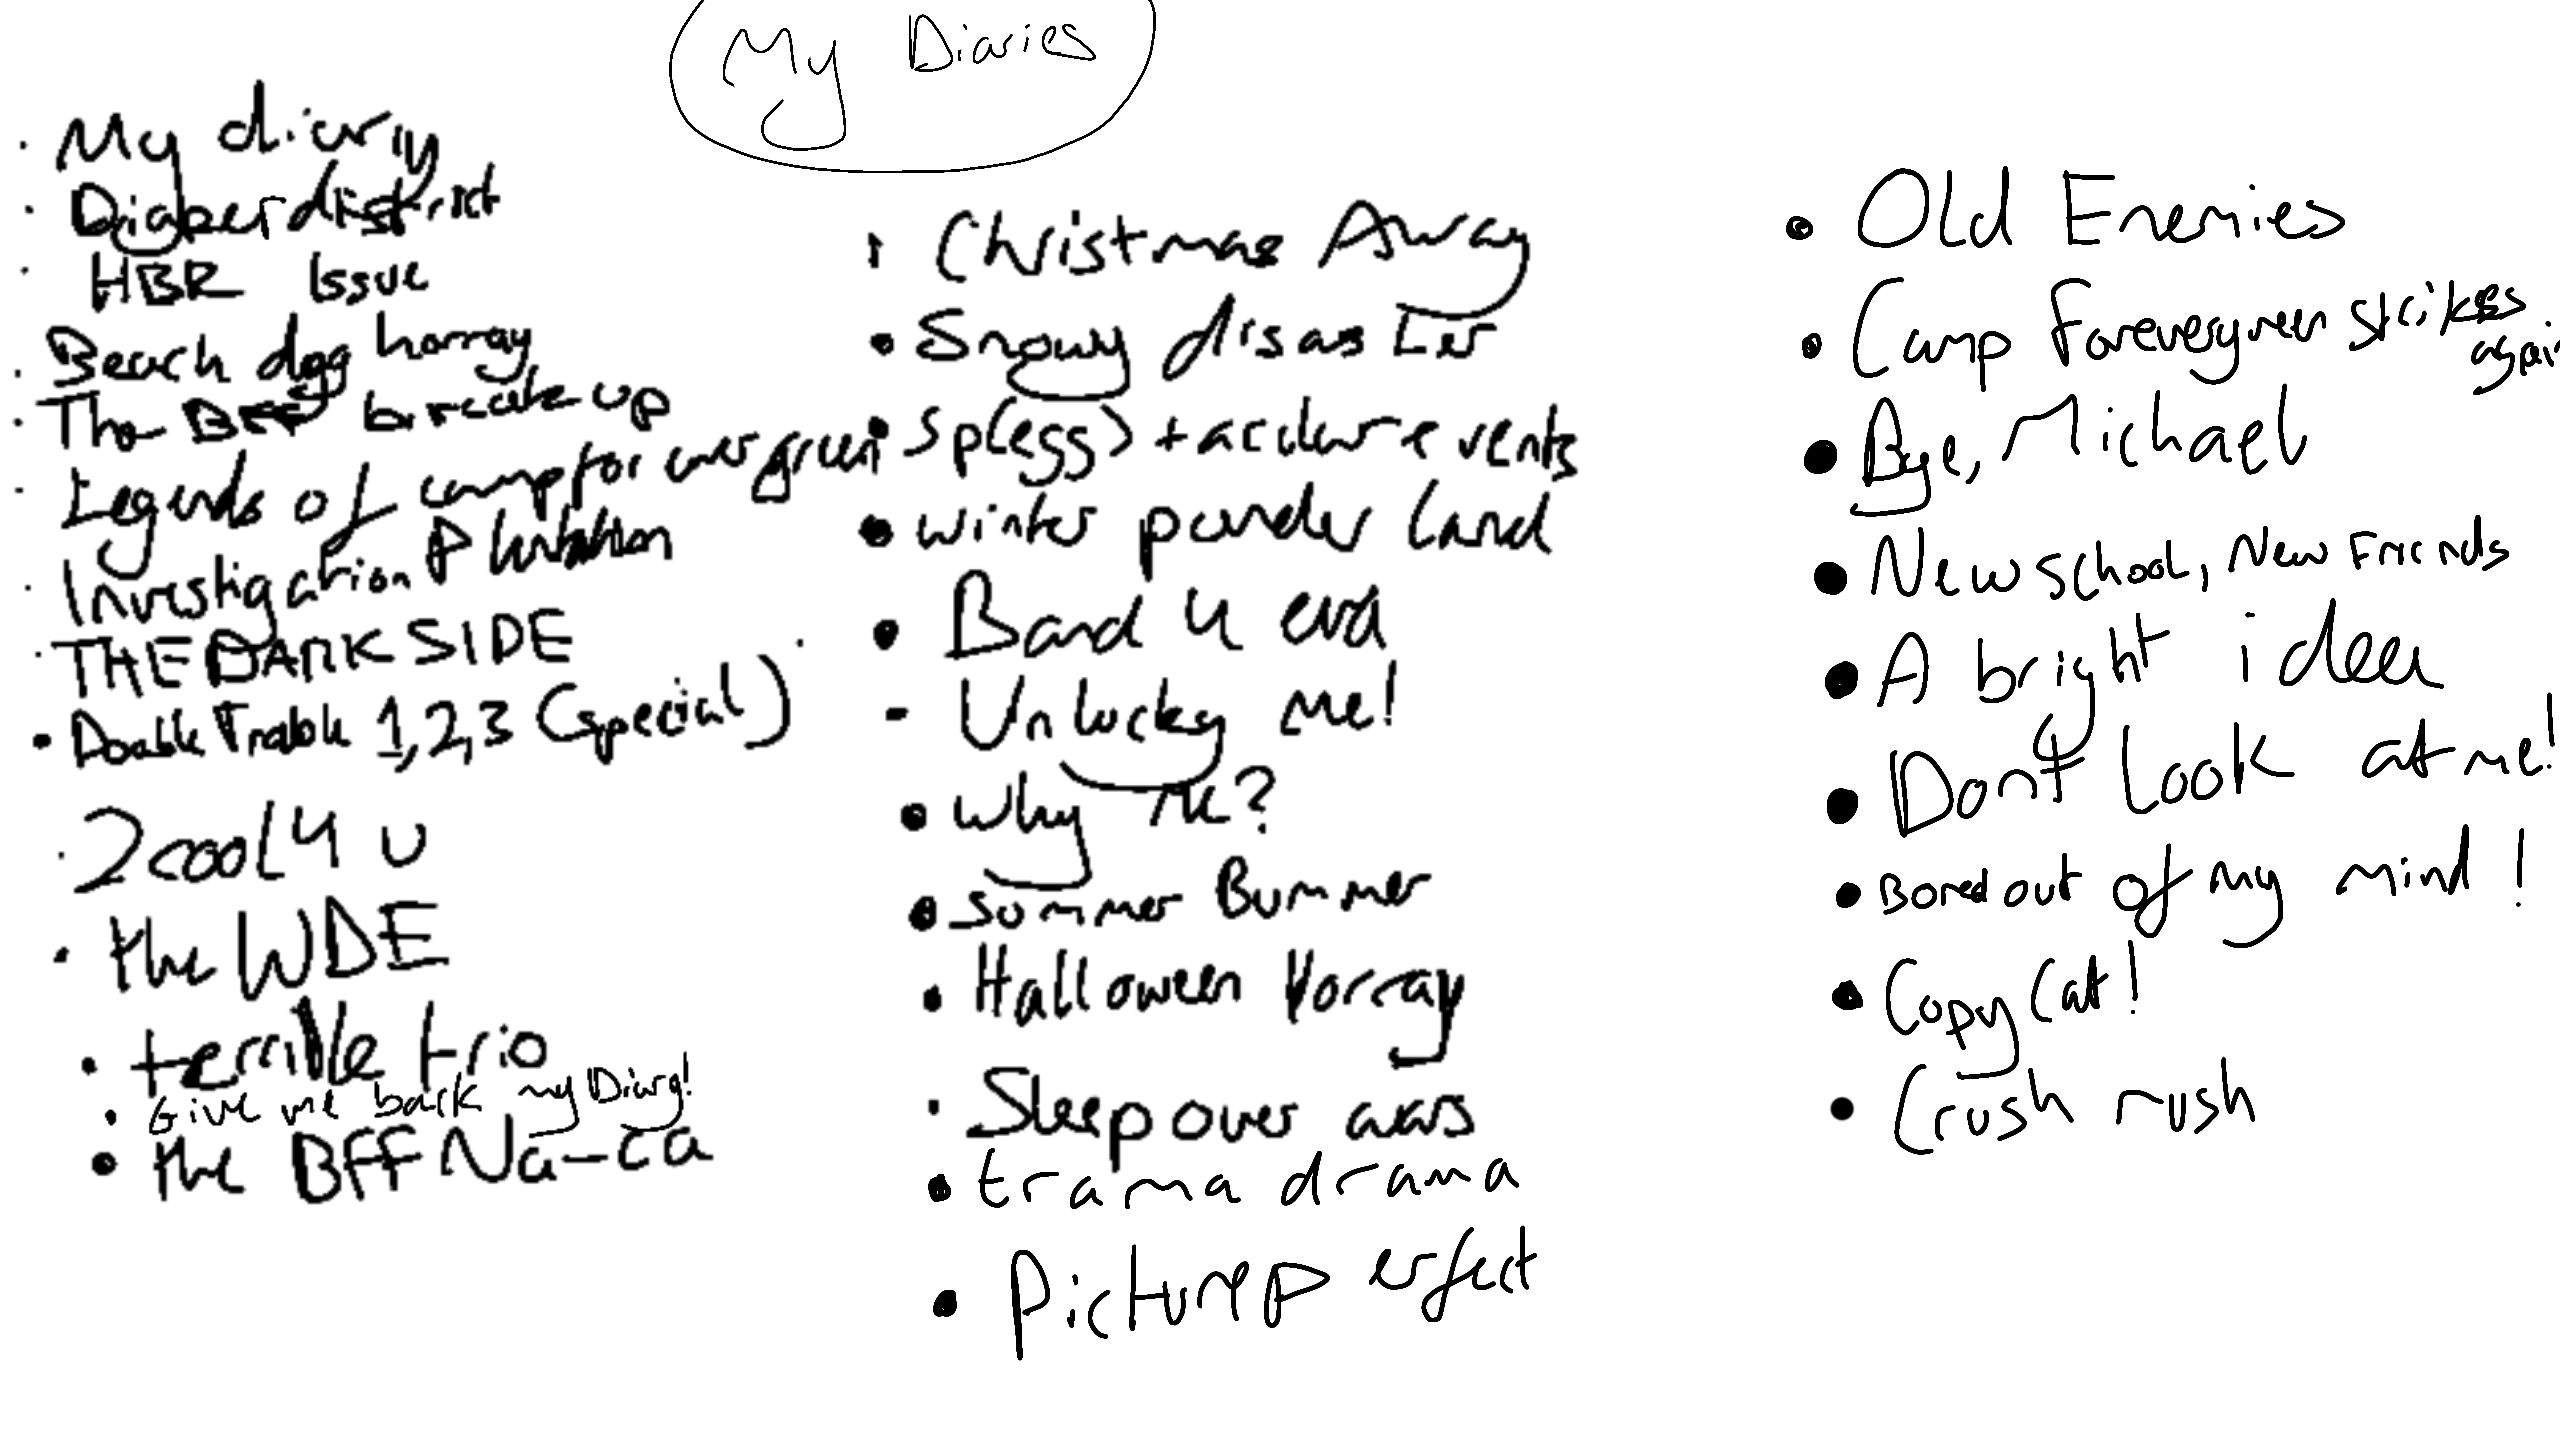 My Diaries
My diary
Diaper district
HBR Issue
Beach dog horray
The BFF break up
Legends of camp for evergreen
Investigation Plantation
THE DARK SIDE
Double Trouble 1,2,3 (special)
2cool4 u
the WDE
terrible trio
Give me back my Diary!
the BFF Na-ca
Christmas Away
Snowy disaster
sp(egg)
winter ponder land
Band 4 eva
Unlucky me!
Why me?
Summer Bummer
Halloween Horray
Sleepover
trama drama
Picture perfect
Old Enemies
Camp Forevergreen strikes
again
Bye, Michael
New school, New Friends
A bright idea
Don't Look at me!
Bored out of my mind!
Copy Cat!
Crush rush